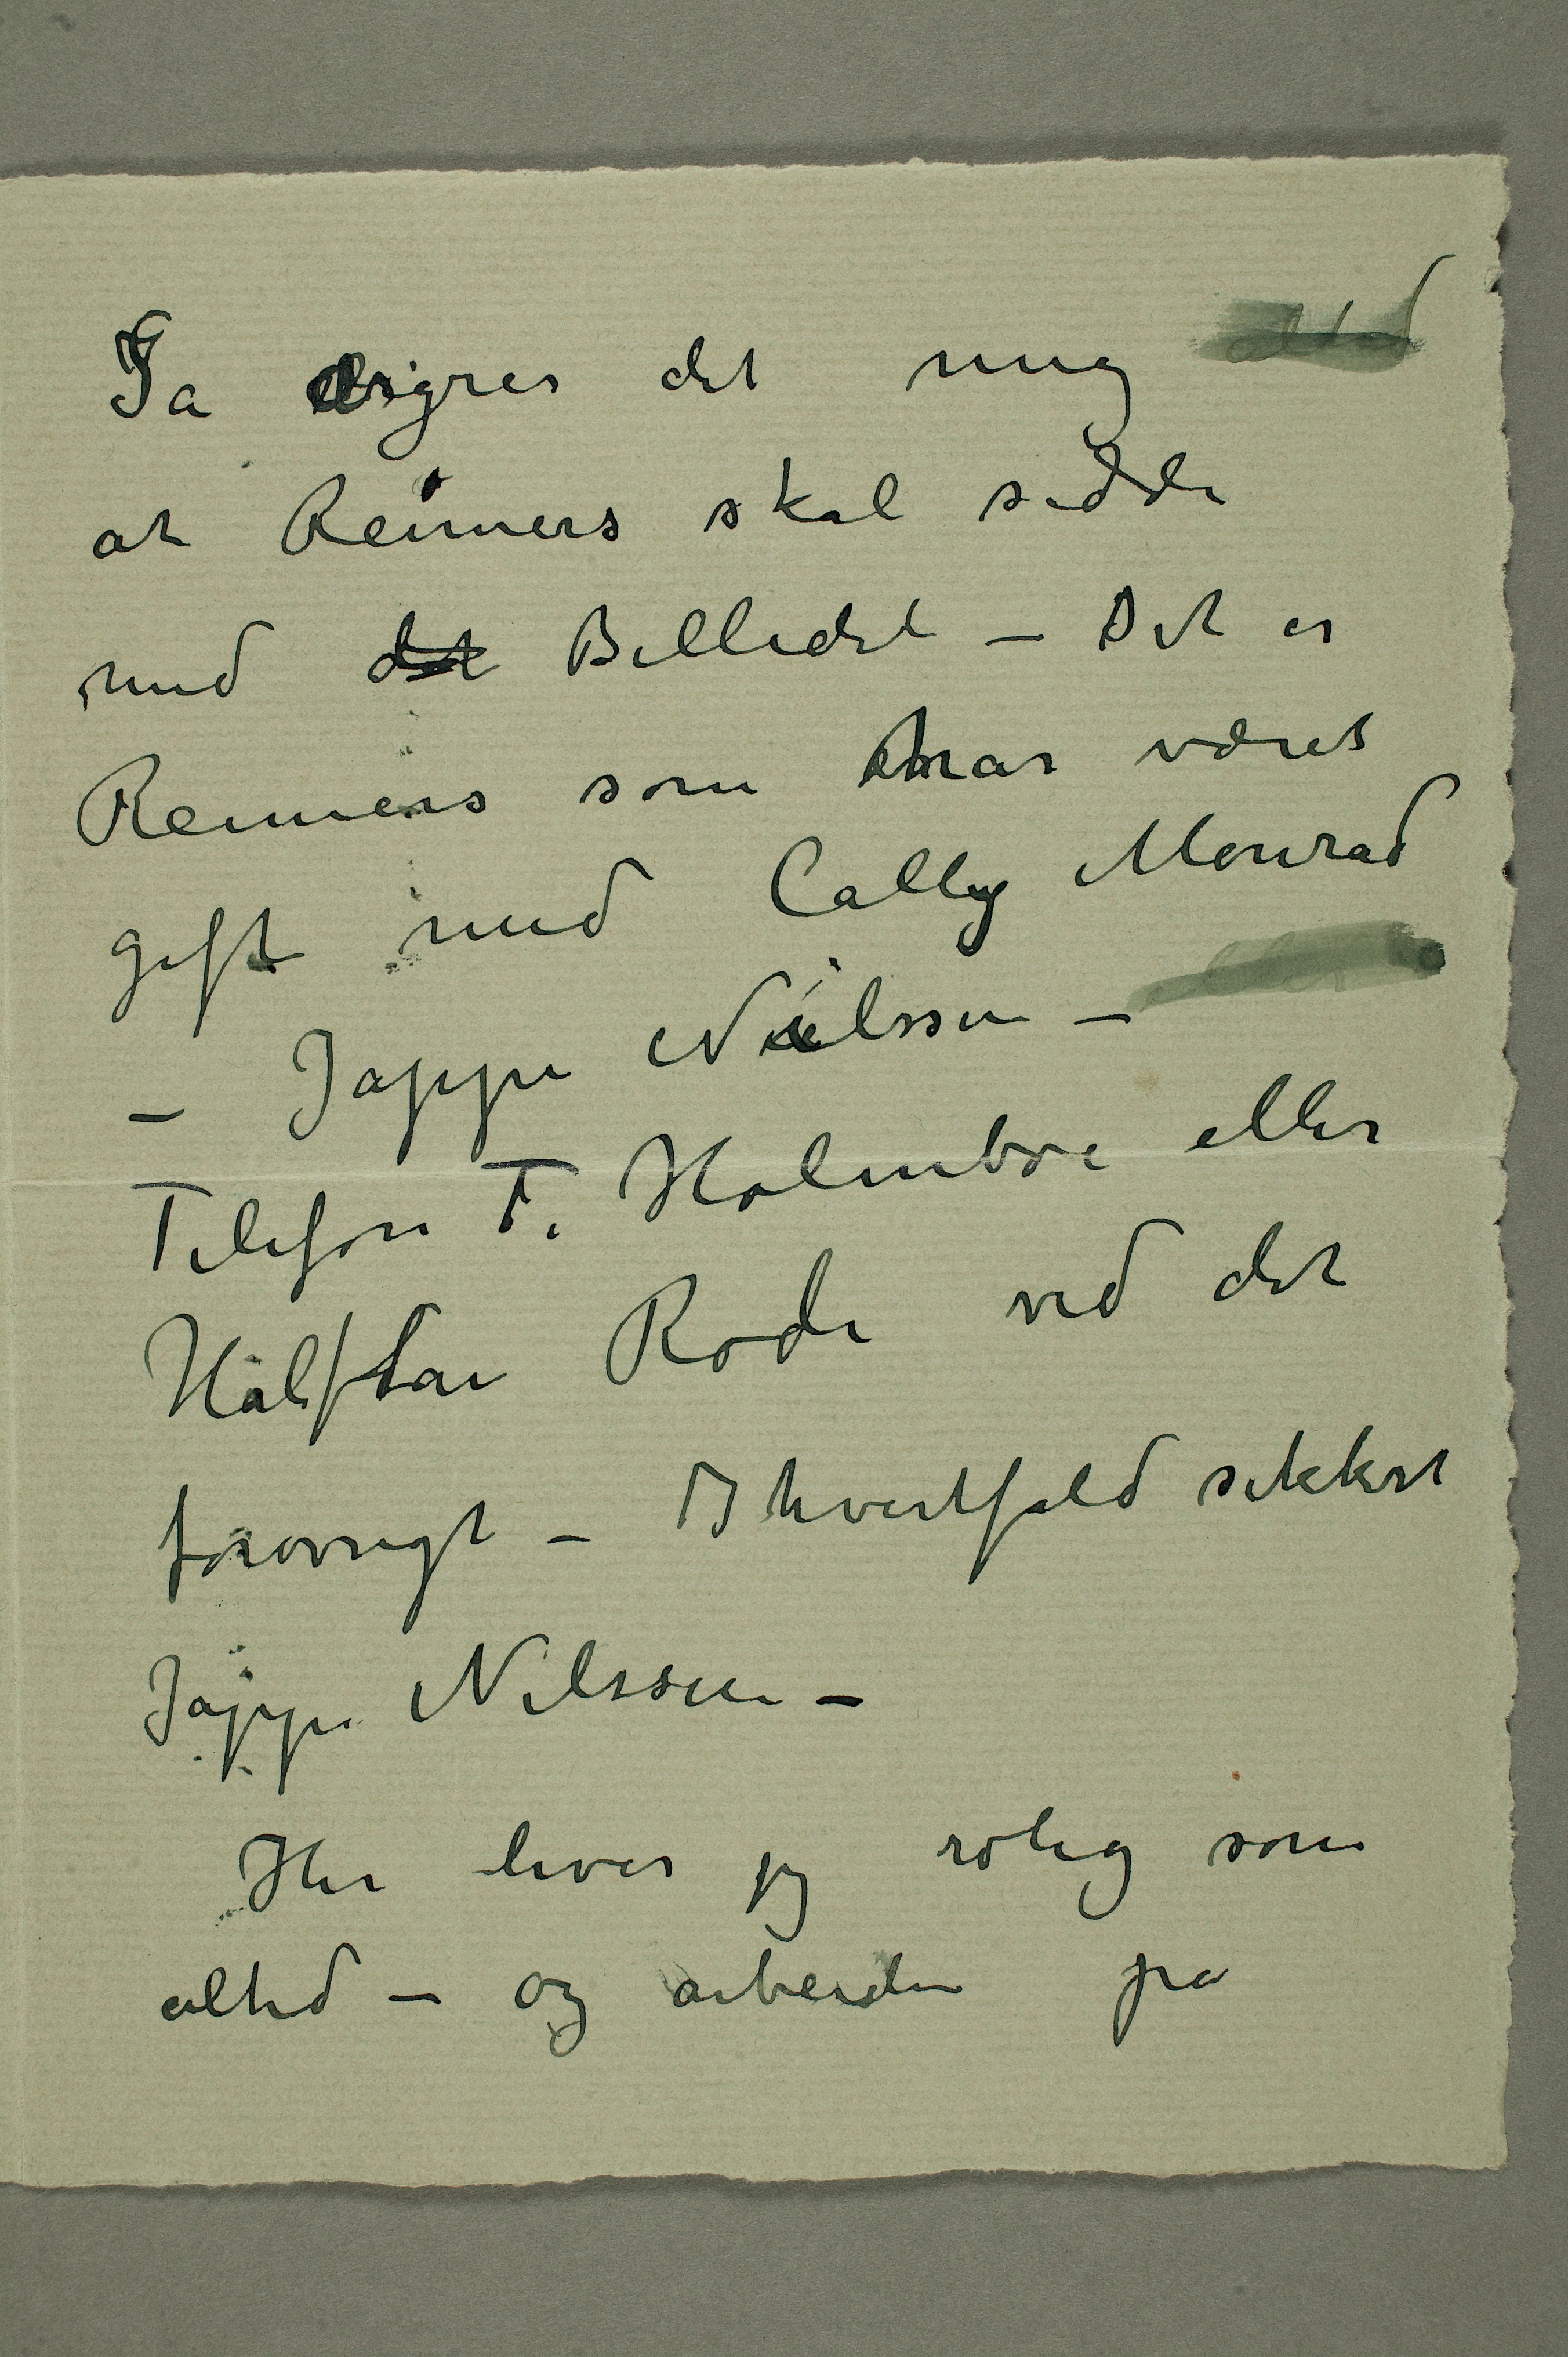 Så ærgrer det mig altid
at Reimers skal sidde
med det Billedet – Det er
Reimers som har været
gift med Cally Monrad
– Jappe Nilssen –
Telefon T. Holmboe eller
Halfdan Rode ved det
forøvrigt – I hvertfald sikkert
Jappe Nilssen –
Her lever jeg rolig som
altid – og arbeider på